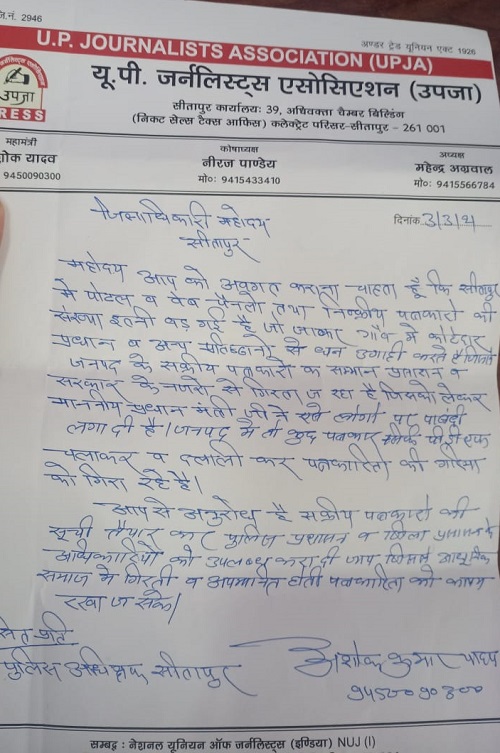 जि.नं. 2946
अण्डर ट्रेड यूनियन एक्ट 1926
U.P. JOURNALISTS ASSOCIATION (UPJA)
यू.पी. जर्नलिस्ट्स एसोसिएशन (उपजा)
उपजा
PRESS
सीतापुर कार्यालयः 39, अधिवक्ता चैम्बर बिल्डिंग
(निकट सेल्स टैक्स आफिस) कलेक्ट्रेट परिसर-सीतापुर - 261 001
महामंत्री
शोक यादव
9450090300
कोषाध्यक्ष
नीरज पाण्डेय
मो०: 9415433410
अध्यक्ष
महेन्द्र अग्रवाल
मो०: 9415566784
जिलाधिकारी महोदय
सीतापुर
दिनांक 3/3/21
महोदय आप को अवगत कराना चाहता हूँ कि सीतापुर
में पोर्टल व वेब चैनलो तथा निष्क्रीय पत्रकारो की
संख्या इतनी बड़ गई है जो जाकर गाँव में कोटेदार
प्रधान व अन्य से धन उगाही करते है जिससे
जनपद के सक्रीय पत्रकारो का समान प्रशासन व
सरकार के नजरो से गिरता ज रहा है जिसको लेकर
माननीय प्रधान मंत्री जी ने ऐसे लोगो पर पाबंदी
लगा दी है। जनपद में तो कुछ पत्रकार सिर्फ पी डी एफ
चलाकर व दलाली कर पत्रकारिता की गरिमा
को गिरा रहे है।
आप से अनुरोध है सक्रीय पत्रकारो की
सूची तैयार कर पुलिस प्रशासन व जिला प्रशासन के
अधिकारियो को उपलब्ध करा दी जाय जिससे आधुनिक
समाज में गिरती व अपमानित होती पत्रकारिता को कायम
रखा ज सके।
प्रति
पुलिस अधिक्षक सीतापुर
अशोक कुमार यादव
9450090300
सम्बद्ध : नेशनल यूनियन ऑफ जर्नलिस्ट्स (इण्डिया) NUJ (I)